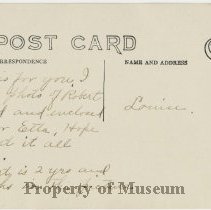 POST CARD
RRESPONDENCE
NAME AND ADDRESS
is for you, I
Photo of Robert
and enclosed
Etta, Hope
it all
Louise
is 2 yrs and
Property of Museum